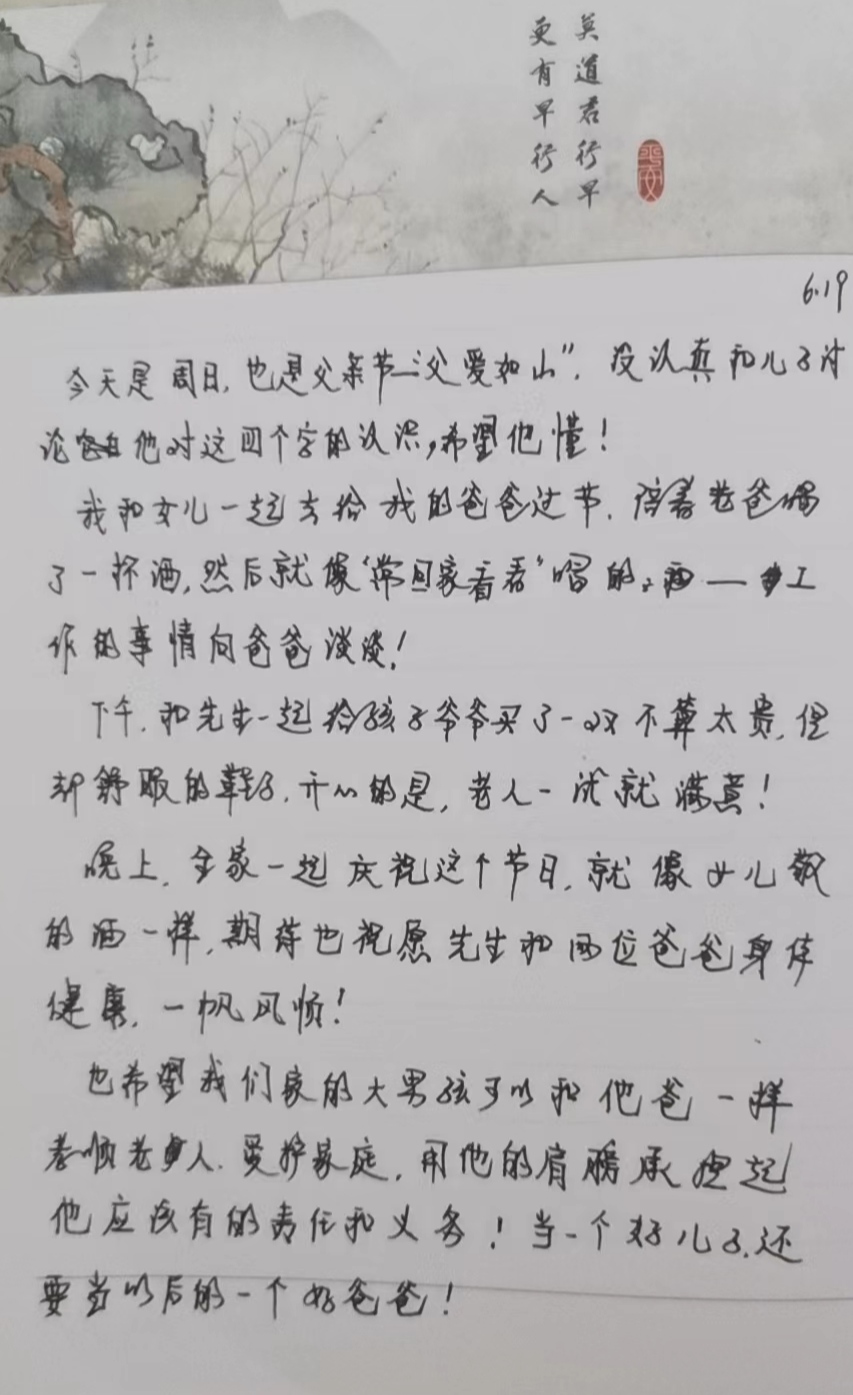 莫道君行早
更有早行人
平安
6.19
今天是周日,也是父亲节—“父爱如山”.没认真和儿子讨
论他对这四个字的认识,希望他懂!
我和女儿一起去给我的爸爸过节.陪着老爸喝
了一杯酒,然后就像“常回家看看”唱的:—工
作的事情向爸爸谈谈!
下午.和先生一起给孩子爷爷买了一双不算太贵,但
却舒服的鞋子.开心的是,老人一试就满意!
晚上,全家一起庆祝这个节日,就像女儿敬
的酒一样,期待也祝愿先生和两位爸爸身体
健康,一帆风顺!
也希望我们家的大男孩可以和他爸一样
孝顺老人.爱护家庭,用他的肩膀承担起
他应该有的责任和义务!当一个好儿子,还
要当以后的一个好爸爸!